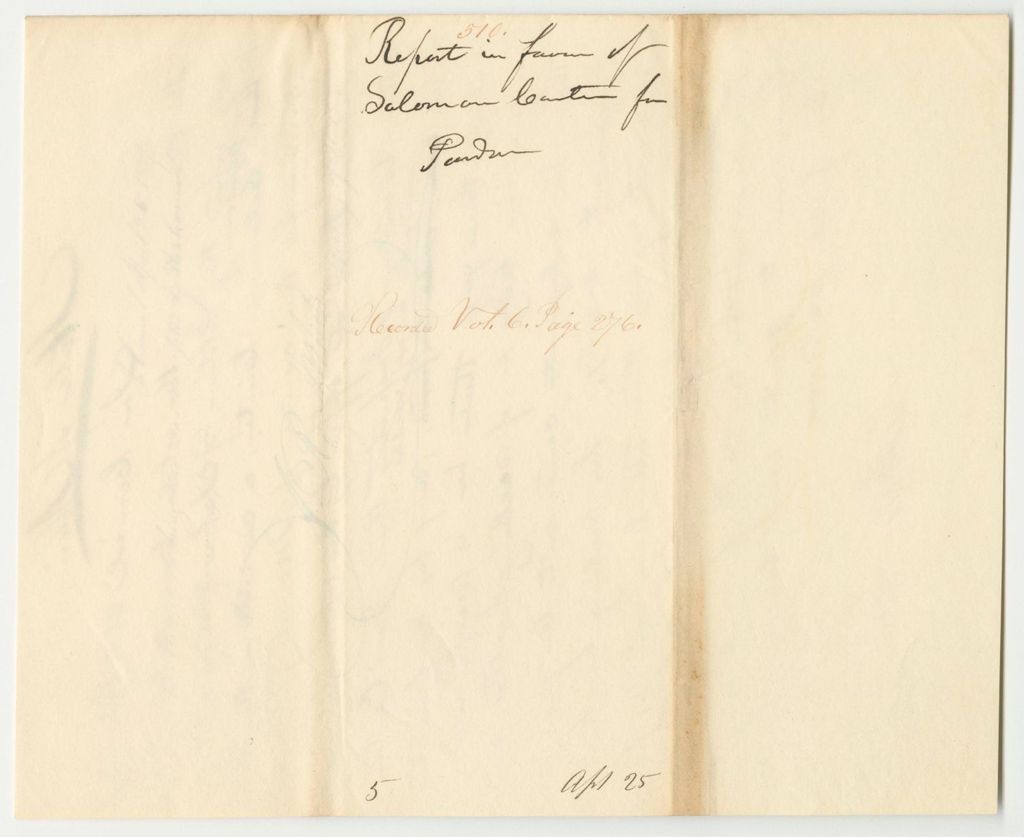 510.
Report in favor of
Salomon Carter for
Pardon
Recorded Vol. 6. Page 276.
5 Apl 25